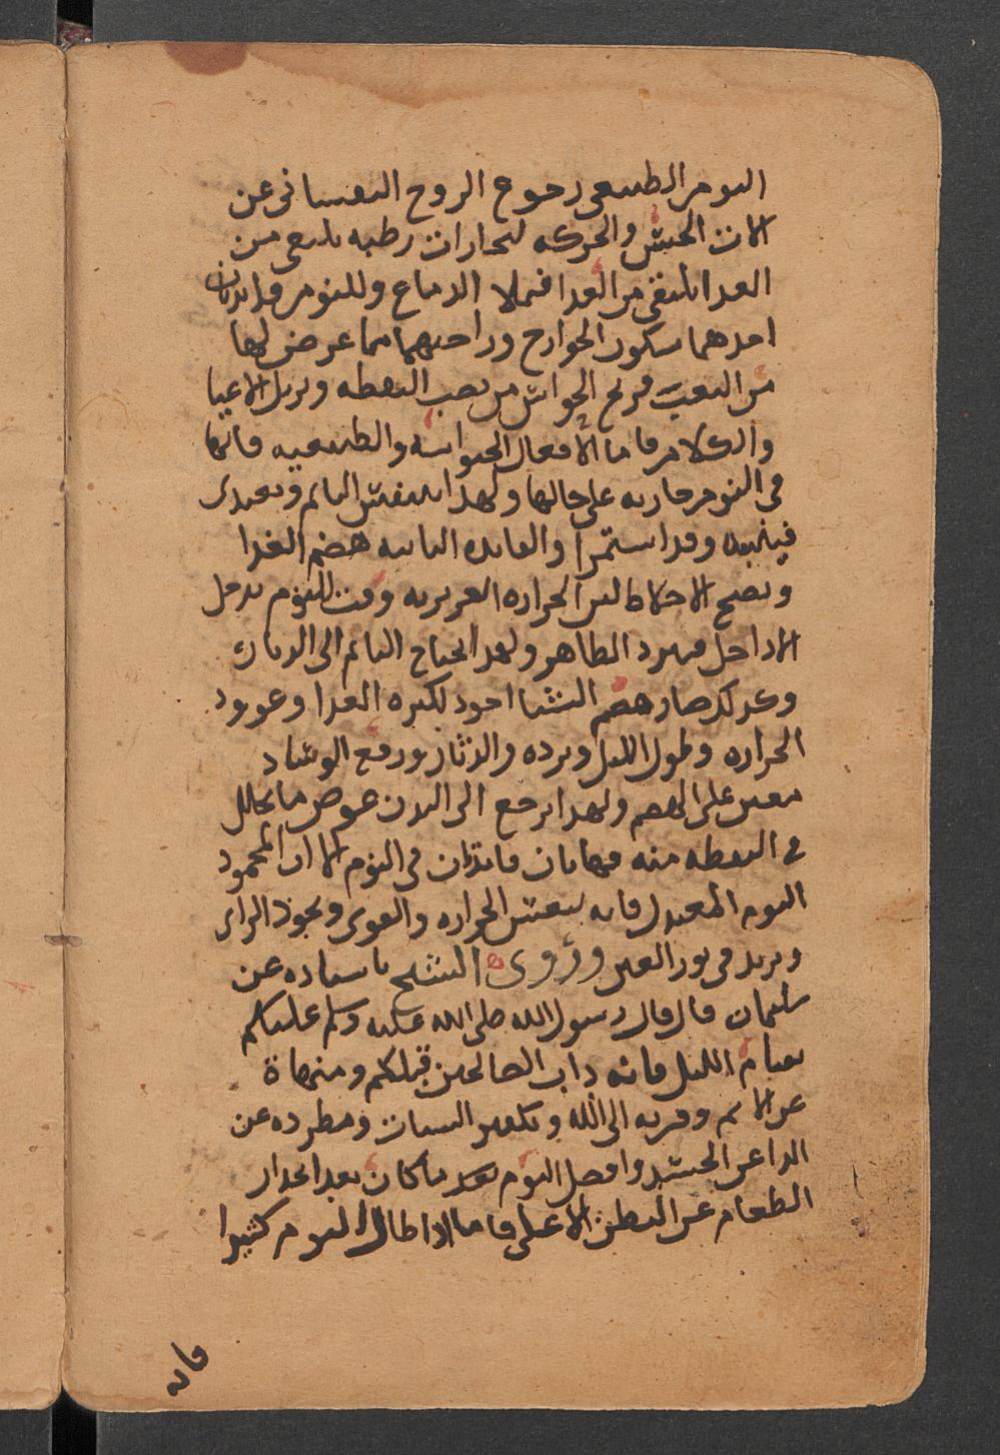 النوم الطبيعى رجوع الروح النفسانى عن
الات الحس والحركه لبخارات رطبه يلتقى من
الغدا فتملا الدماغ وللنوم فايدتان
احدهما سكون الجوارح وراحتهما مما عرض لها
من التعب فريح الحواس من نصب اليقظه ويزيل الاعيا
والكلام فاما الافعال الحيوانيه والطبيعيه فانها
فى النوم جاريه على حالها ولهدا يتنفس النايم ويغتدى
فينتبه وقد استمرا والفايده الثانيه هضم الغدا
ونضج الاخلاط لان الحراره الغريزيه وقت النوم تدخل
الا داخل فيبرد الظاهر ولهدا يحتاج النايم الى الدثار
وكدلك صار هضم الشتا اجود لكثره الغدا وغوور
الحراره وطول الليل وبرده والدثار ورفع الوساد
معين على الهضم ولهدا يرجع الى البدن عوض ما تحلل
فى اليقظه منه فهاتان فايدتان فى النوم الا ان المحمود
النوم المعتدل فانه ينعش الحراره والقوى ويجود الراى
ويزيد فى نور العين وروى الشيخ باسناده عن
سلمان قال قال رسول الله صلى الله عليه وسلم عليكم
بقيام الليل فانه داب الصالحين قبلكم ومنهاة
عن الاثم وقربه الى الله وتكفير السيات ومطرده عن
الدا عن الجسد وافضل النوم بعد ما كان بعد انحدار
الطعام عن البطن الاعلى فاما ادا طال النوم كثيرا
فانه